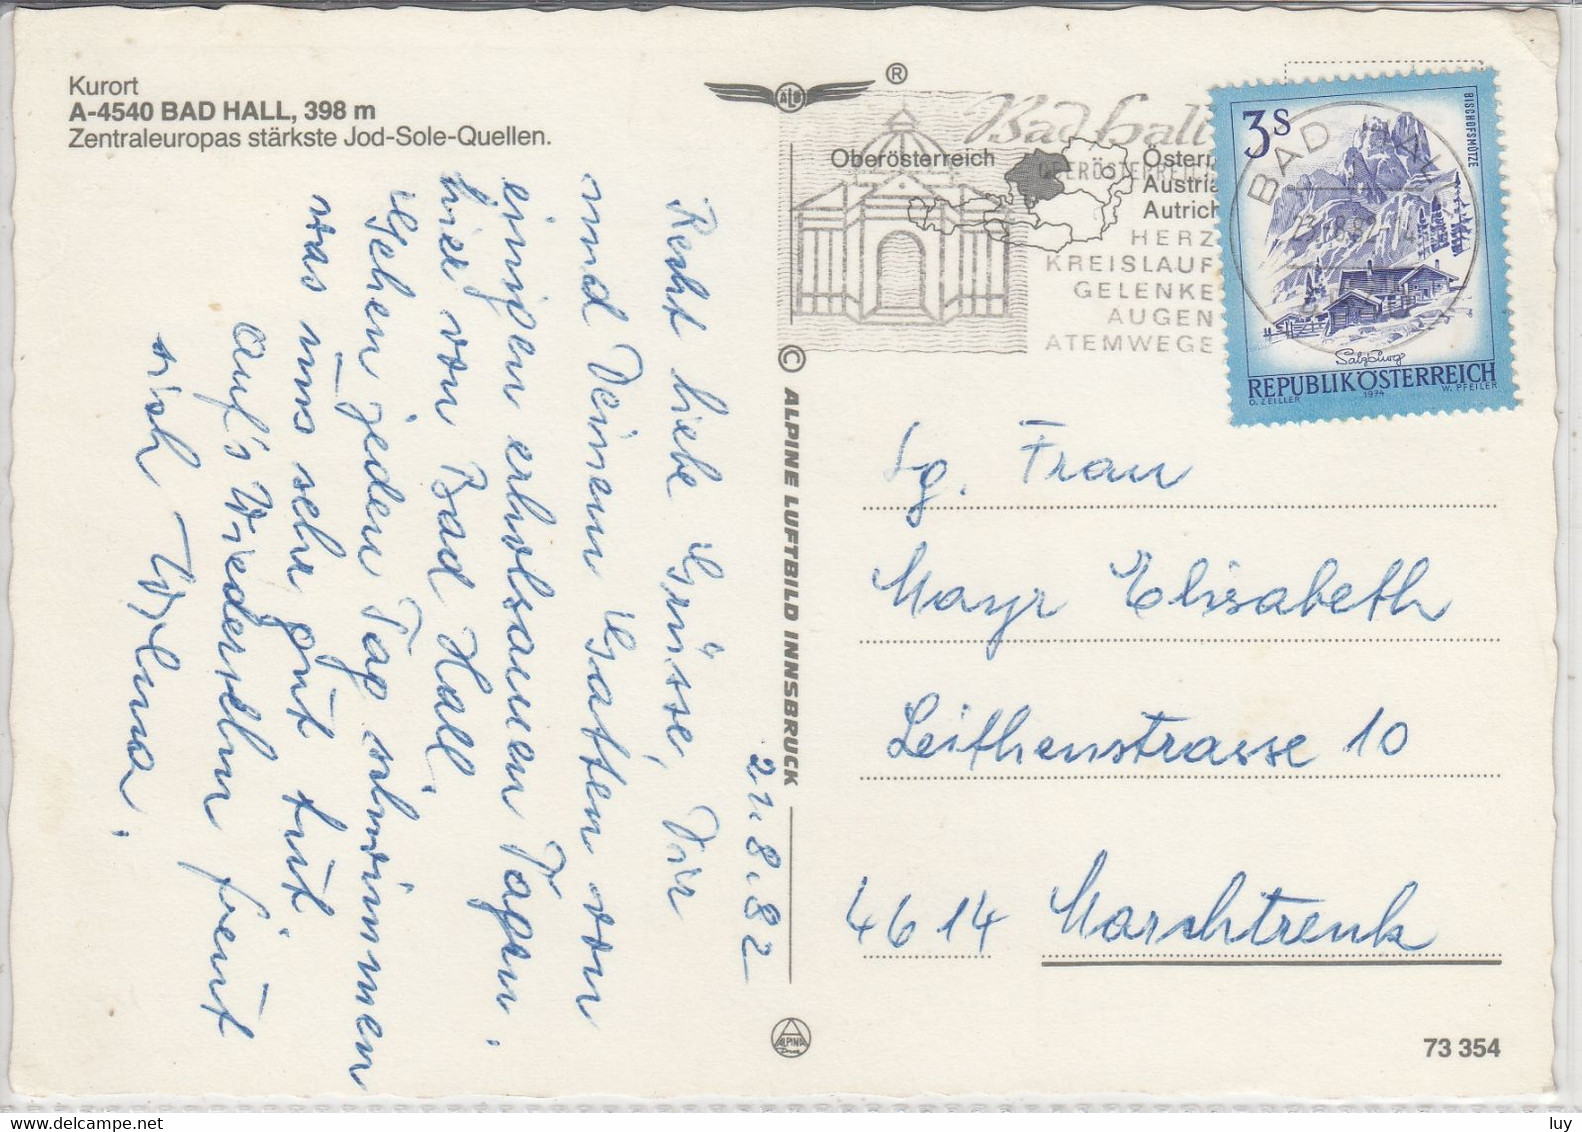 Kurort
A-4540 BAD HALL, 398 m
Zentraleuropas stärkste Jod-Sole-Quellen.
21.8.82
Recht liebe Grüsse, Dir
und Deinem Gatten von
einigen erholsamen Tagen.
hier von Bad Hall.
Gehen jeden Tag schwimmen
was uns sehr gut tut.
Auf's Wiedersehn freut
sich Wilma.
®
ALB
Bad Hall
OBERÖSTERREICH
HERZ
KREISLAUF
GELENKE
AUGEN
ATEMWEGE
Oberösterreich
Österr
Austria
Autrich
BAD HALL
3S
BISCHOFSMÜTZE
Salzburg
REPUBLIK ÖSTERREICH
O. ZEILLER 1974 W. PFEILER
© ALPINE LUFTBILD INNSBRUCK
Sg. Frau
Mayr Elisabeth
Leithenstrasse 10
4614 Marchtrenk
ALPINA
Druck
73 354
luy